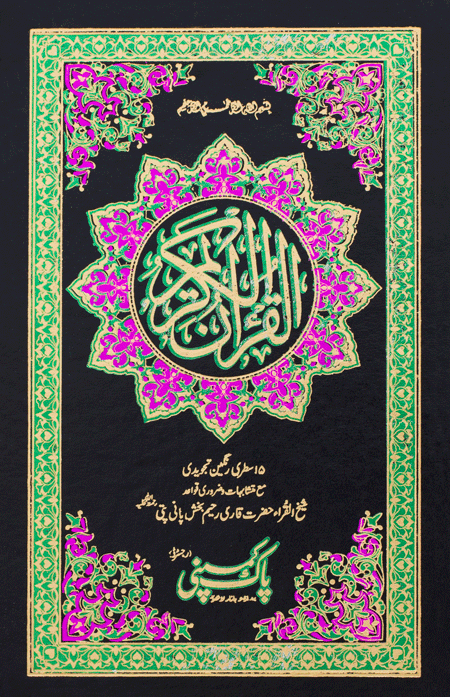 بسم الله الرحمن الرحيم
القرآن الكريم
۱۵ سطری رنگین تجویدی
مع متشابہات و ضروری قواعد
شیخ القراء حضرت قاری رحیم بخش پانی پتی
پاک کمپنی (رجسٹرڈ)